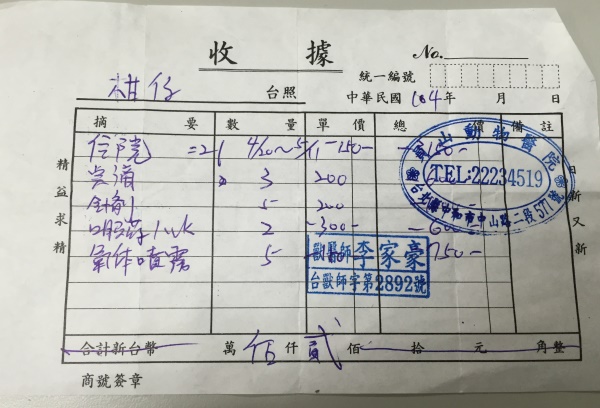 收據 No.
統一編號
柑仔 台照 中華民國 104年 月 日
摘要 數量 單價 總價 備註
住院 =21 4/20~5/ 150-
3 200
針劑 5 200
口服藥 1wk 2 -300-
氣体噴霧 5 750-
動物醫院
TEL:22234519
台北縣中和市中山路二段577號
獸醫師 李家豪
台獸師字第2892號
精益求精
日新又新
合計新台幣 萬 伍仟貳佰 拾 元 角整
商號簽章